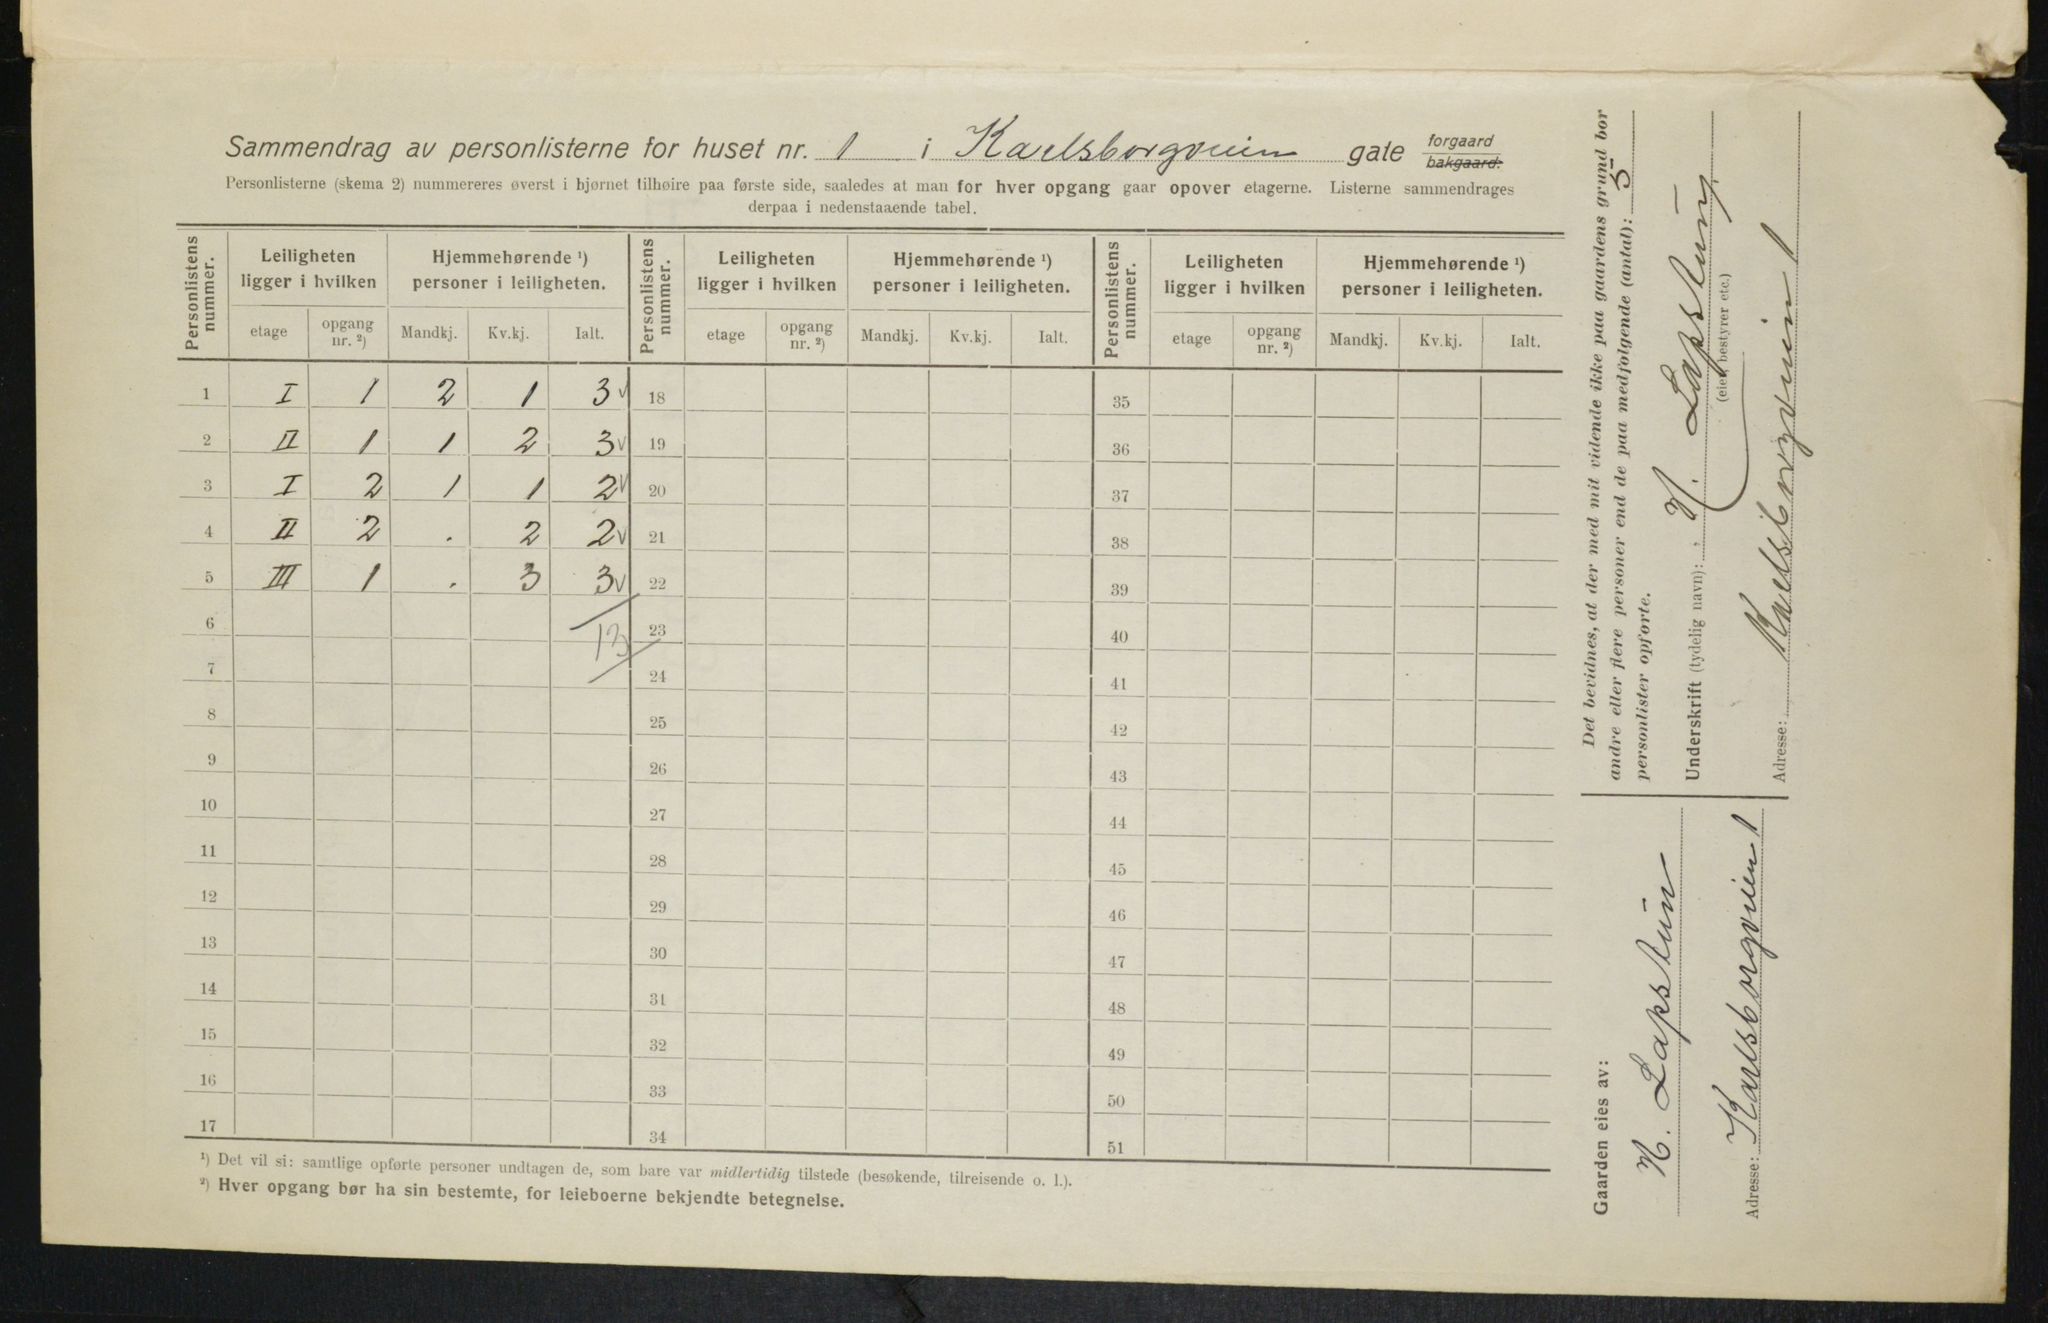 Sammendrag av personlisterne for huset nr. 1 i Karlsborgveien gate forgaard
bakgaard.
Personlisterne (skema 2) nummereres øverst i hjørnet tilhøire paa første side, saaledes at man for hver opgang gaar opover etagerne. Listerne sammendrages
derpaa i nedenstaaende tabel.
Personlistens nummer. Leiligheten ligger i hvilken Hjemmehørende ¹) personer i leiligheten. Personlistens nummer. Leiligheten ligger i hvilken Hjemmehørende ¹) personer i leiligheten. Personlistens nummer. Leiligheten ligger i hvilken Hjemmehørende ¹) personer i leiligheten.
etage opgang nr. ²) Mandkj. Kv.kj. Ialt. etage opgang nr. ²) Mandkj. Kv.kj. Ialt. etage opgang nr. ²) Mandkj. Kv.kj. Ialt.
1 I 1 2 1 3 v 18 35
2 II 1 1 2 3 v 19 36
3 I 2 1 1 2 v 20 37
4 II 2 . 2 2 v 21 38
5 III 1 . 3 3 v 22 39
6 13 23 40
7 24 41
8 25 42
9 26 43
10 27 44
11 28 45
12 29 46
13 30 47
14 31 48
15 32 49
16 33 50
17 34 51
¹) Det vil si: samtlige opførte personer undtagen de, som bare var midlertidig tilstede (besøkende, tilreisende o. l.).
²) Hver opgang bør ha sin bestemte, for leieboerne bekjendte betegnelse.
Det bevidnes, at der med mit vidende ikke paa gaardens grund bor
andre eller flere personer end de paa medfølgende (antal): 5
personlister opførte.
Underskrift (tydelig navn): N. Lapstun
(eier, bestyrer etc.)
Adresse: Karlsborgveien 1
Gaarden eies av:
N. Lapstun
Adresse: Karlsborgveien 1